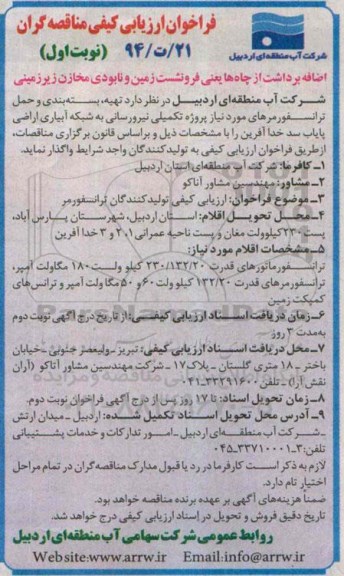 فراخوان ارزیابی کیفی مناقصه گران
۲۱/ت/۹۴ (نوبت اول)
شرکت آب منطقه ای اردبیل
اضافه برداشت از چاه‌ها یعنی فرونشست زمین و نابودی مخازن زیرزمینی
شرکت آب منطقه‌ای اردبیل در نظر دارد تهیه، بسته‌بندی و حمل
ترانسفورمرهای مورد نیاز پروژه تکمیلی نیرورسانی به شبکه آبیاری اراضی
پایاب سد خدا آفرین را با مشخصات ذیل و براساس قانون برگزاری مناقصات،
از طریق فراخوان ارزیابی کیفی به تولیدکنندگان واجد شرایط واگذار نماید.
۱ـ کارفرما: شرکت آب منطقه‌ای استان اردبیل
۲ـ مشاور: مهندسین مشاور آناکو
۳ـ موضوع فراخوان: ارزیابی کیفی تولیدکنندگان ترانسفورمر
۴ـ محل تحویل اقلام: استان اردبیل، شهرستان پارس آباد،
پست ۲۳۰ کیلوولت مغان و پست ناحیه عمرانی ۱و۲ و ۳ خدا آفرین
۵ـ مشخصات اقلام مورد نیاز:
ترانسفورماتورهای قدرت ۲۳۰/۱۳۲/۲۰ کیلو ولت ۱۸۰ مگاولت آمپر،
ترانسفورمرهای قدرت ۱۳۲/۲۰ کیلو ولت ۶۰ و ۵۰ مگا ولت آمپر و ترانس‌های
کمپکت زمین
۶ـ زمان دریافت اسناد ارزیابی کیفی: از تاریخ درج آگهی نوبت دوم
به‌مدت ۳ روز
۷ـ محل دریافت اسناد ارزیابی کیفی: تبریز ـ ولیعصر جنوبی ـ خیابان
باختر ـ ۱۸ متری گلستان ـ پلاک ۱۷ ـ شرکت مهندسین مشاور آناکو (آران
نقش آراد) ـ تلفن: ۰۴۱ـ۳۳۲۹۱۶۰۰
۸ـ زمان تحویل اسناد: تا ۱۷ روز پس از درج آگهی فراخوان نوبت دوم.
۹ـ آدرس محل تحویل اسناد تکمیل شده: اردبیل ـ میدان ارتش
ـ شرکت آب منطقه‌ای اردبیل ـ امور تدارکات و خدمات پشتیبانی
تلفن: ۳ـ۰۴۵ـ۳۳۷۱۰۰۰۱
لازم به ذکر است کارفرما در رد یا قبول مدارک مناقصه گران در تمام مراحل
اختیار تام دارد.
ضمناً هزینه‌های آگهی بر عهده برنده مناقصه خواهد بود.
تاریخ دقیق فروش و تحویل در اسناد ارزیابی کیفی درج خواهد شد.
روابط عمومی شرکت سهامی آب منطقه‌ای اردبیل
Website:www.arrw.ir Email:info@arrw.ir